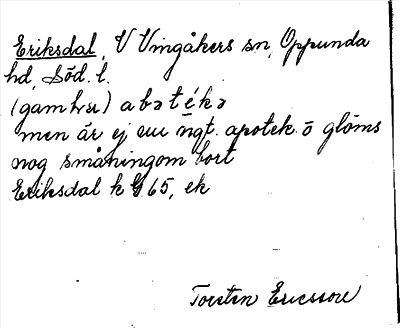 Eriksdal, V Vingåkers sn, Oppunda
hd, Söd. l.
(gam hrsu) abətékə
men är ej nu ngt. apotek o glöms
nog småningom bort
Eriksdal k G 65, ek
Torsten Ericsson